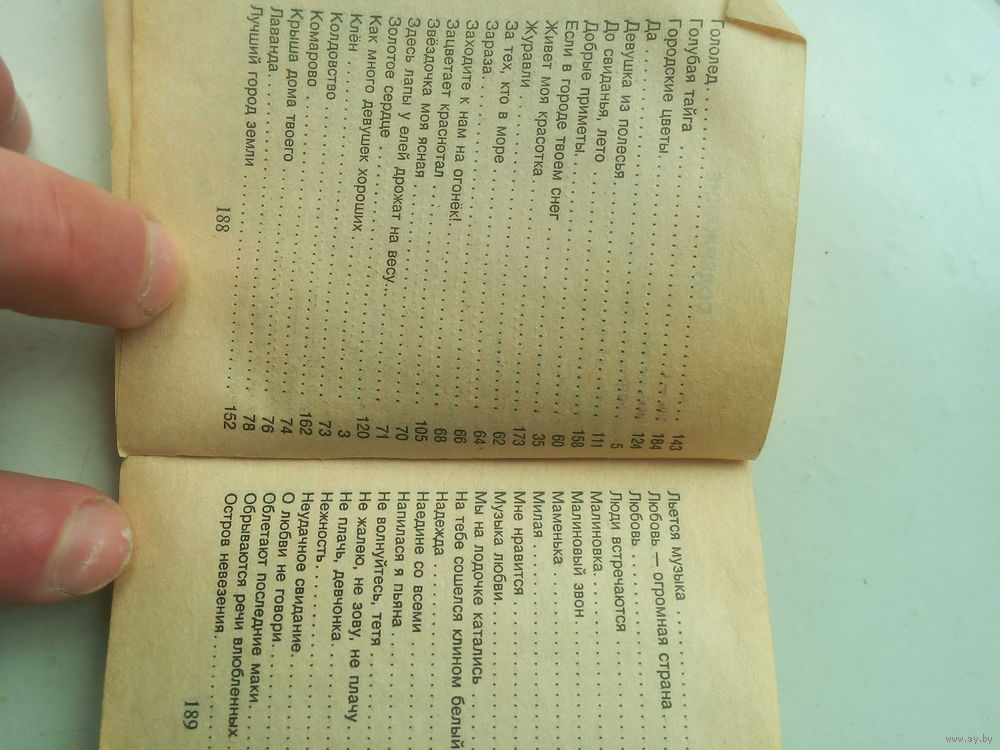 Гололед........ 143
Голубая тайга........ 184
Городские цветы........ 124
Да........ 5
Девушка из полесья........ 111
До свиданья, лето........ 158
Добрые приметы........ 60
Если в городе твоем снег........ 35
Живет моя красотка........ 173
Журавли........ 62
За тех, кто в море........ 64
Зараза........ 66
Заходите к нам на огонёк!........ 68
Зацветает краснотал........ 105
Звёздочка моя ясная........ 70
Здесь лапы у елей дрожат на весу........ 71
Золотое сердце........ 120
Как много девушек хороших........ 3
Клён........ 73
Колдовство........ 162
Комарово........ 74
Крыша дома твоего........ 76
Лаванда........ 78
Лучший город земли........ 152
188
Льется музыка........
Любовь — огромная страна........
Любовь........
Люди встречаются........
Малиновка........
Малиновый звон........
Маменька........
Милая........
Мне нравится........
Музыка любви........
Мы на лодочке катались
На тебе сошелся клином белый
Надежда........
Наедине со всеми........
Напилася я пьяна........
Не волнуйтесь, тетя........
Не жалею, не зову, не плачу........
Не плачь, девчонка........
Нежность........
Неудачное свидание........
О любви не говори........
Облетают последние маки........
Обрываются речи влюбленных........
Остров невезения........
189
www.ay.by